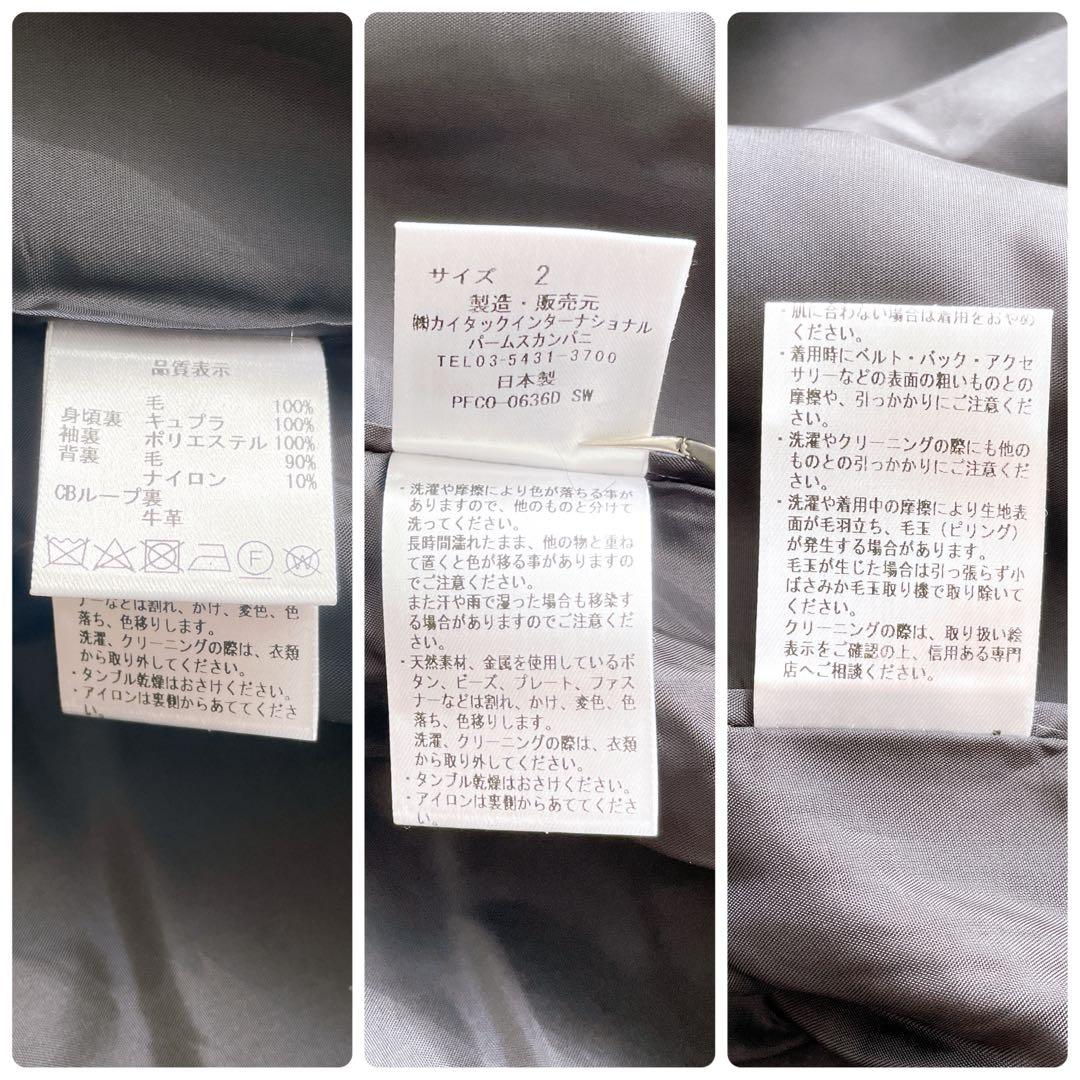 品質表示
毛 100%
身頃裏 キュプラ 100%
袖裏 ポリエステル 100%
背裏 毛 90%
ナイロン 10%
CBループ裏
牛革
F
W
ナーなどは割れ、かけ、変色、色
落ち、色移りします。
洗濯、クリーニングの際は、衣類
から取り外してください。
・タンブル乾燥はおさけください。
・アイロンは裏側からあててくださ
い。
サイズ 2
製造・販売元
㈱カイタックインターナショナル
パームスカンパニ
TEL03-5431-3700
日本製
PFCO-0636D SW
・洗濯や摩擦により色が落ちる事が
ありますので、他のものと分けて
洗ってください。
長時間濡れたまま、他の物と重ね
て置くと色が移る事がありますの
でご注意ください。
また汗や雨で湿った場合も移染す
る場合がありますのでご注意くださ
い。
・天然素材、金属を使用しているボ
タン、ビーズ、プレート、ファス
ナーなどは割れ、かけ、変色、色
落ち、色移りします。
洗濯、クリーニングの際は、衣類
から取り外してください。
・タンブル乾燥はおさけください。
・アイロンは裏側からあててくださ
い。
・肌に合わない場合は着用をおやめ
ください。
・着用時にベルト・バック・アクセ
サリーなどの表面の粗いものとの
摩擦や、引っかかりにご注意くだ
さい。
・洗濯やクリーニングの際にも他の
ものとの引っかかりにご注意くだ
さい。
・洗濯や着用中の摩擦により生地表
面が毛羽立ち、毛玉（ピリング）
が発生する場合があります。
毛玉が生じた場合は引っ張らず小
ばさみか毛玉取り機で取り除いて
ください。
クリーニングの際は、取り扱い絵
表示をご確認の上、信用ある専門
店へご相談ください。